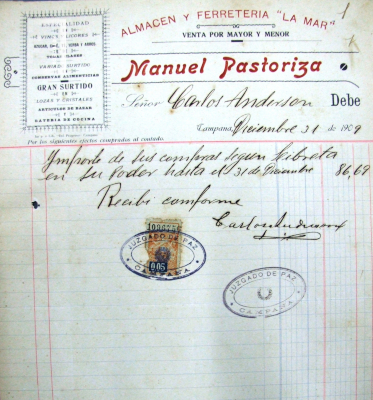 ESPECIALIDAD
EN
VINOS Y LICORES
TODAS CLASES
VARIADO SURTIDO
EN
COMESTIBLES ALIMENTICIOS
GRAN SURTIDO
EN
LOZAS Y CRISTALES
ARTICULOS DE BAZAR
Y
BATERIA DE COCINA
ALMACEN Y FERRETERIA "LA MAR"
VENTA POR MAYOR Y MENOR
DE
Manuel Pastoriza
Señor Carlos Anderson Debe
Campana, Diciembre 31 de 1909
Por los siguientes efectos comprados al contado.
Importe de sus compras segun Libreta
en su poder hasta el 31 de Diciembre 86,69
Recibi conforme
Carlos Anderson
0.05
JUZGADO DE PAZ
CAMPANA
JUZGADO DE PAZ
CAMPANA